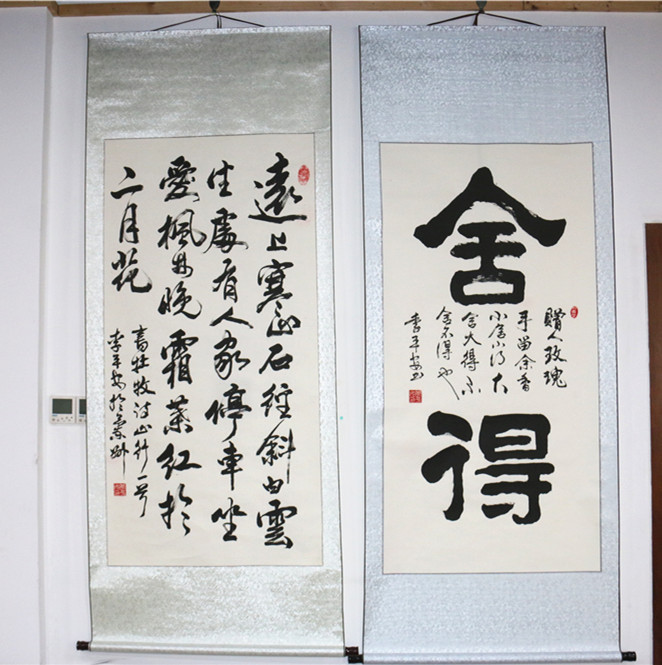 遠上寒山石徑斜白雲
生處有人家停車坐
愛楓林晚霜葉紅於
二月花
書杜牧诗山行一首
李平安於州
舍得
赠人玫瑰
手留余香
小舍小得大
舍大得不
舍不得也
李平安书